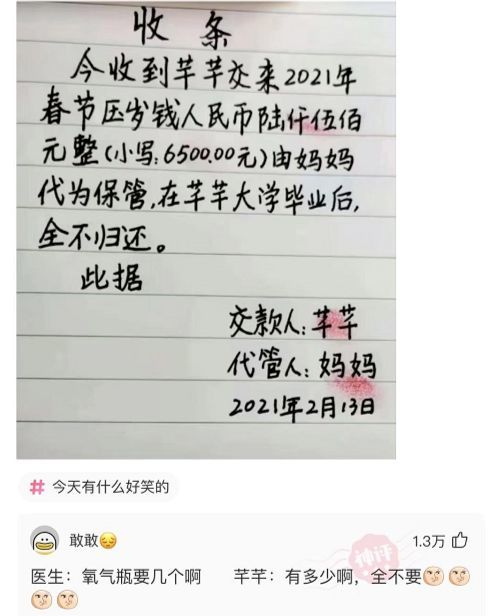 收条
今收到芊芊交来2021年
春节压岁钱人民币陆仟伍佰
元整(小写:6500.00元)由妈妈
代为保管,在芊芊大学毕业后,
全不归还。
此据
交款人:芊芊
代管人:妈妈
2021年2月13日
# 今天有什么好笑的
敢敢 1.3万
神评
医生:氧气瓶要几个啊 芊芊:有多少啊,全不要